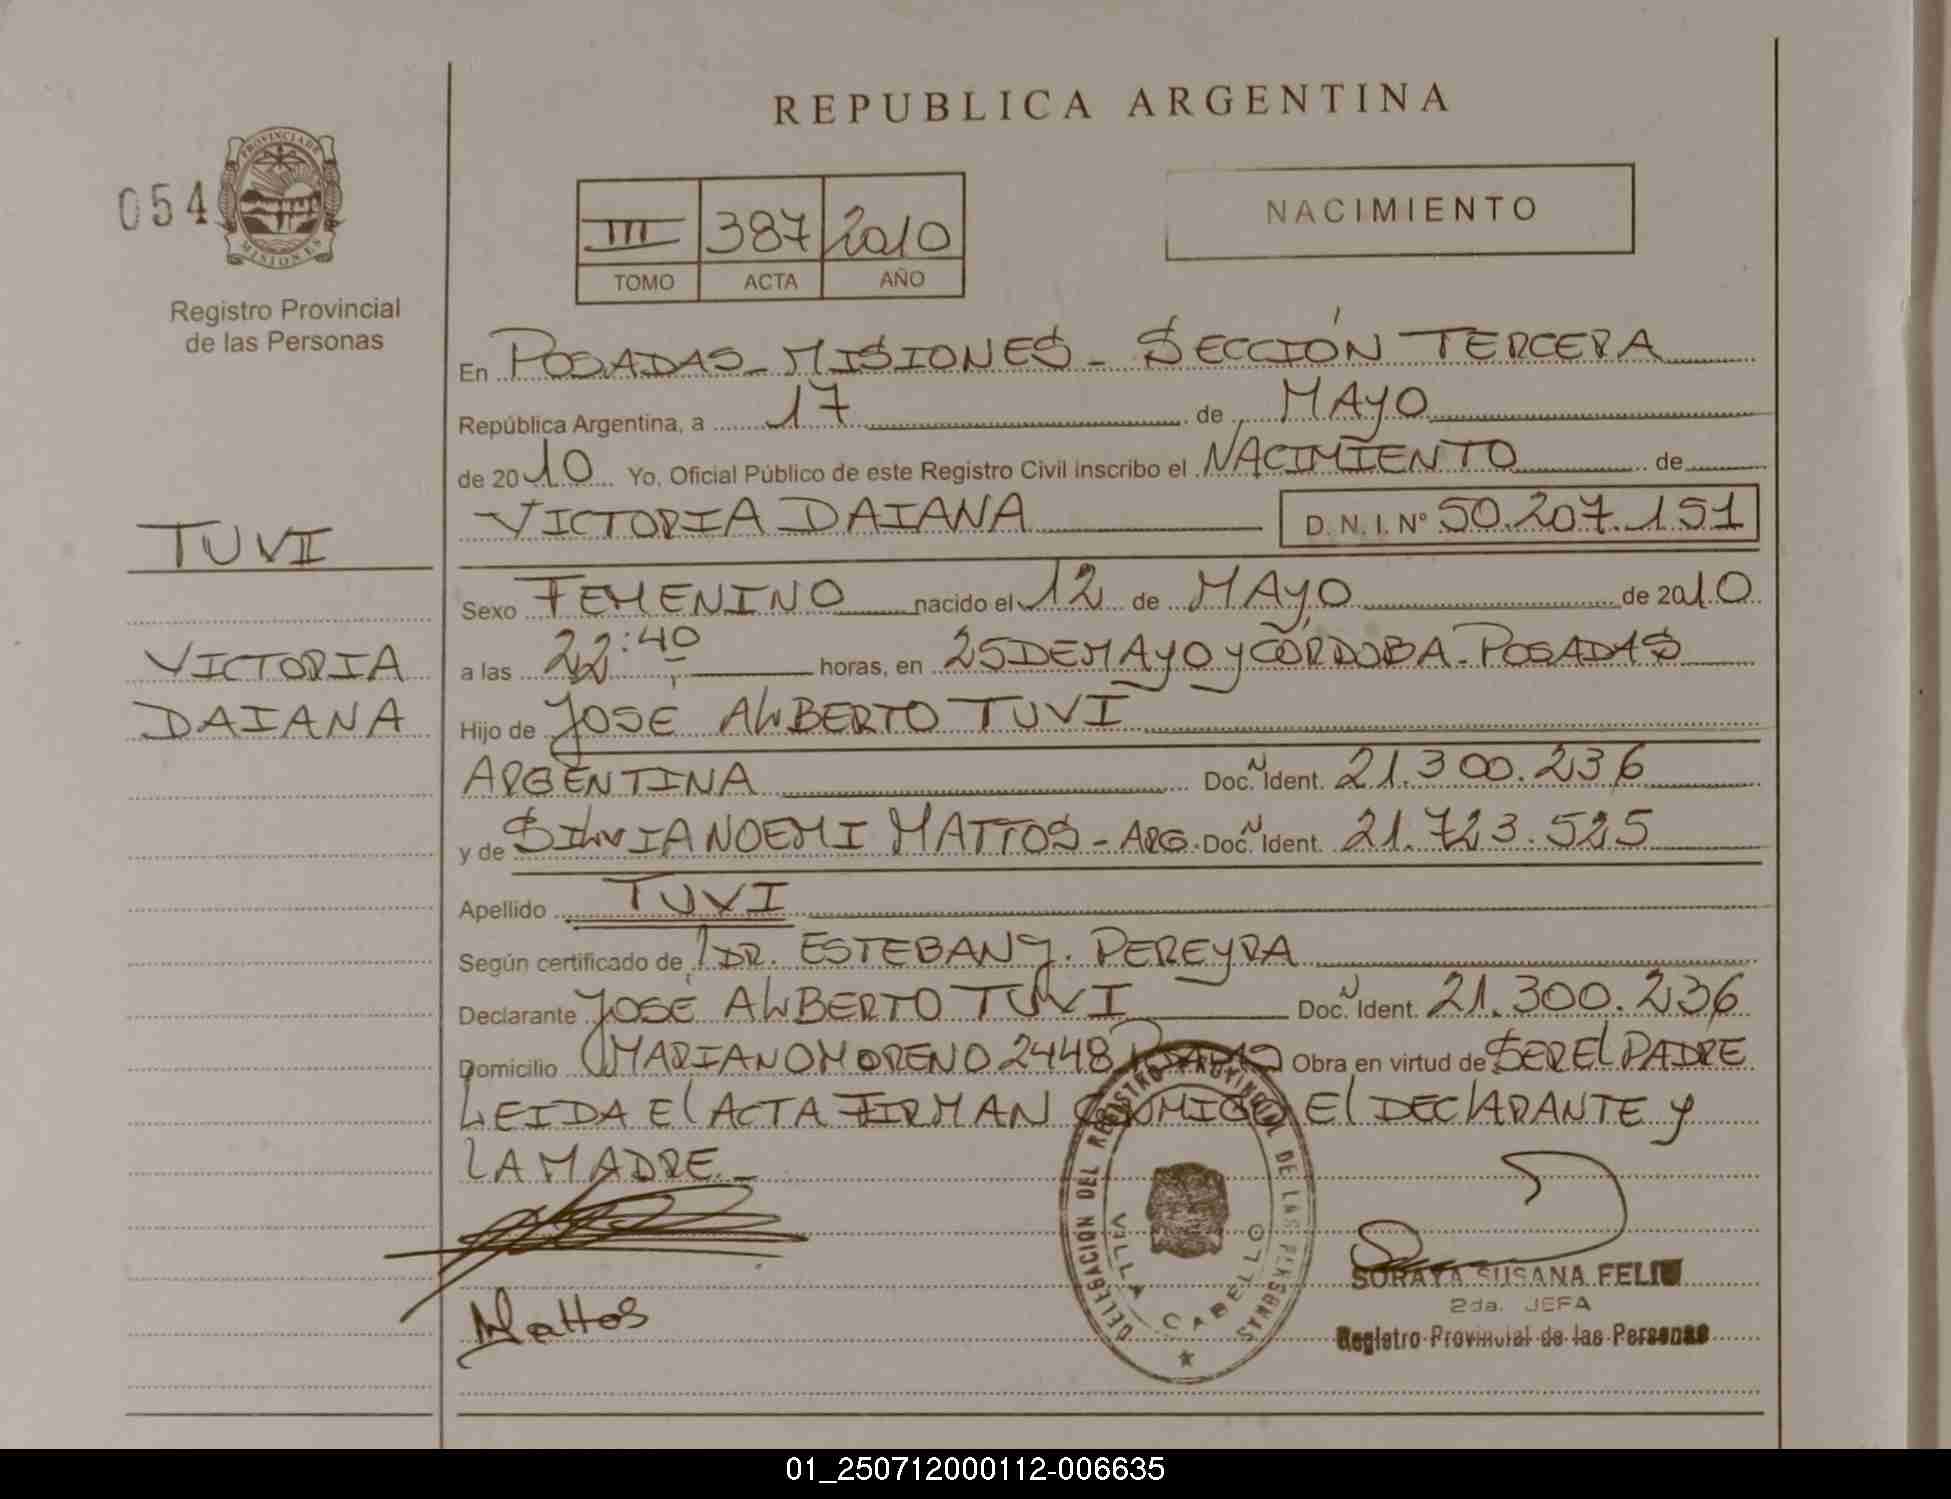 REPUBLICA ARGENTINA
054
PROVINCIA DE MISIONES
III 387 2010
TOMO ACTA AÑO
NACIMIENTO
Registro Provincial
de las Personas
En POSADAS - MISIONES - SECCIÓN TERCERA
República Argentina, a 17 de MAYO
de 2010 Yo, Oficial Público de este Registro Civil inscribo el NACIMIENTO de
VICTORIA DAIANA D. N. I. N° 50.207.151
TUVI
Sexo FEMENINO nacido el 12 de MAYO de 2010
VICTORIA
a las 22:40 horas, en 25 DE MAYO y CÓRDOBA - POSADAS
DAIANA
Hijo de JOSÉ ALBERTO TUVI
ARGENTINA Doc. N Ident. 21.300.236
y de SILVIA NOEMI MATTOS - ARG. Doc. N Ident. 21.723.525
Apellido TUVI
Según certificado de DR. ESTEBAN J. PEREYRA
Declarante JOSÉ ALBERTO TUVI Doc. N Ident. 21.300.236
Domicilio MARIANO MORENO 2448 POSADAS Obra en virtud de SER EL PADRE
LEIDA El ACTA FIRMAN CONMIGO El DEClARANTE y
LA MADRE -
DELEGACIÓN DEL REGISTRO PROVINCIAL DE LAS PERSONAS
VILLA CABELLO
Mattos
SORAYA SUSANA FELIU
2da. JEFA
Registro Provincial de las Personas
01_250712000112-006635